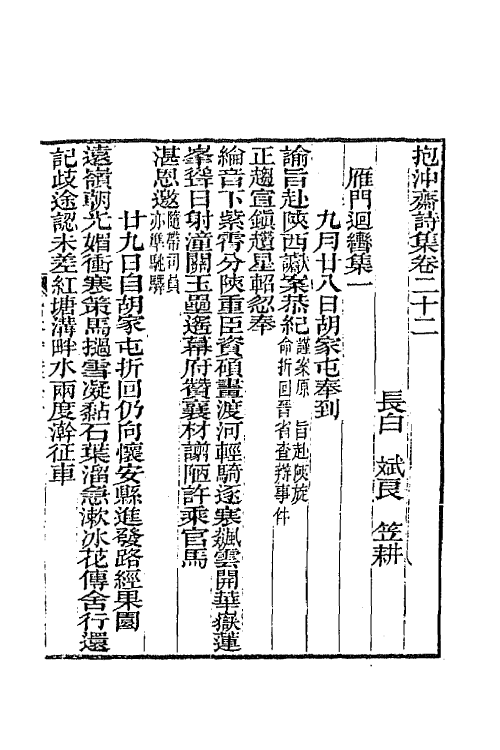 抱沖齋詩集卷二十二
長白　斌良　笠耕
雁門迴轡集一
九月廿八日胡家屯奉到
諭旨赴陝西讞案恭紀謹案原　旨赴陝旋命折回晉省查辦事件
正趨宣鎮遵星軺忽奉
綸音下紫霄分陝重臣資碩畫渡河輕騎逐寒飆雲開華嶽蓮
峯聳日射潼關玉壘遙幕府贊襄材譾陋許乘官馬
湛恩邀隨帶司員亦準馳驛
廿九日自胡家屯折回仍向懷安縣進發路經果園
遠嶺朝光媚衝寒策馬撾雪凝黏石葉溜急漱冰花傳舍行還
記歧途認未差紅塘溝畔水兩度濺征車